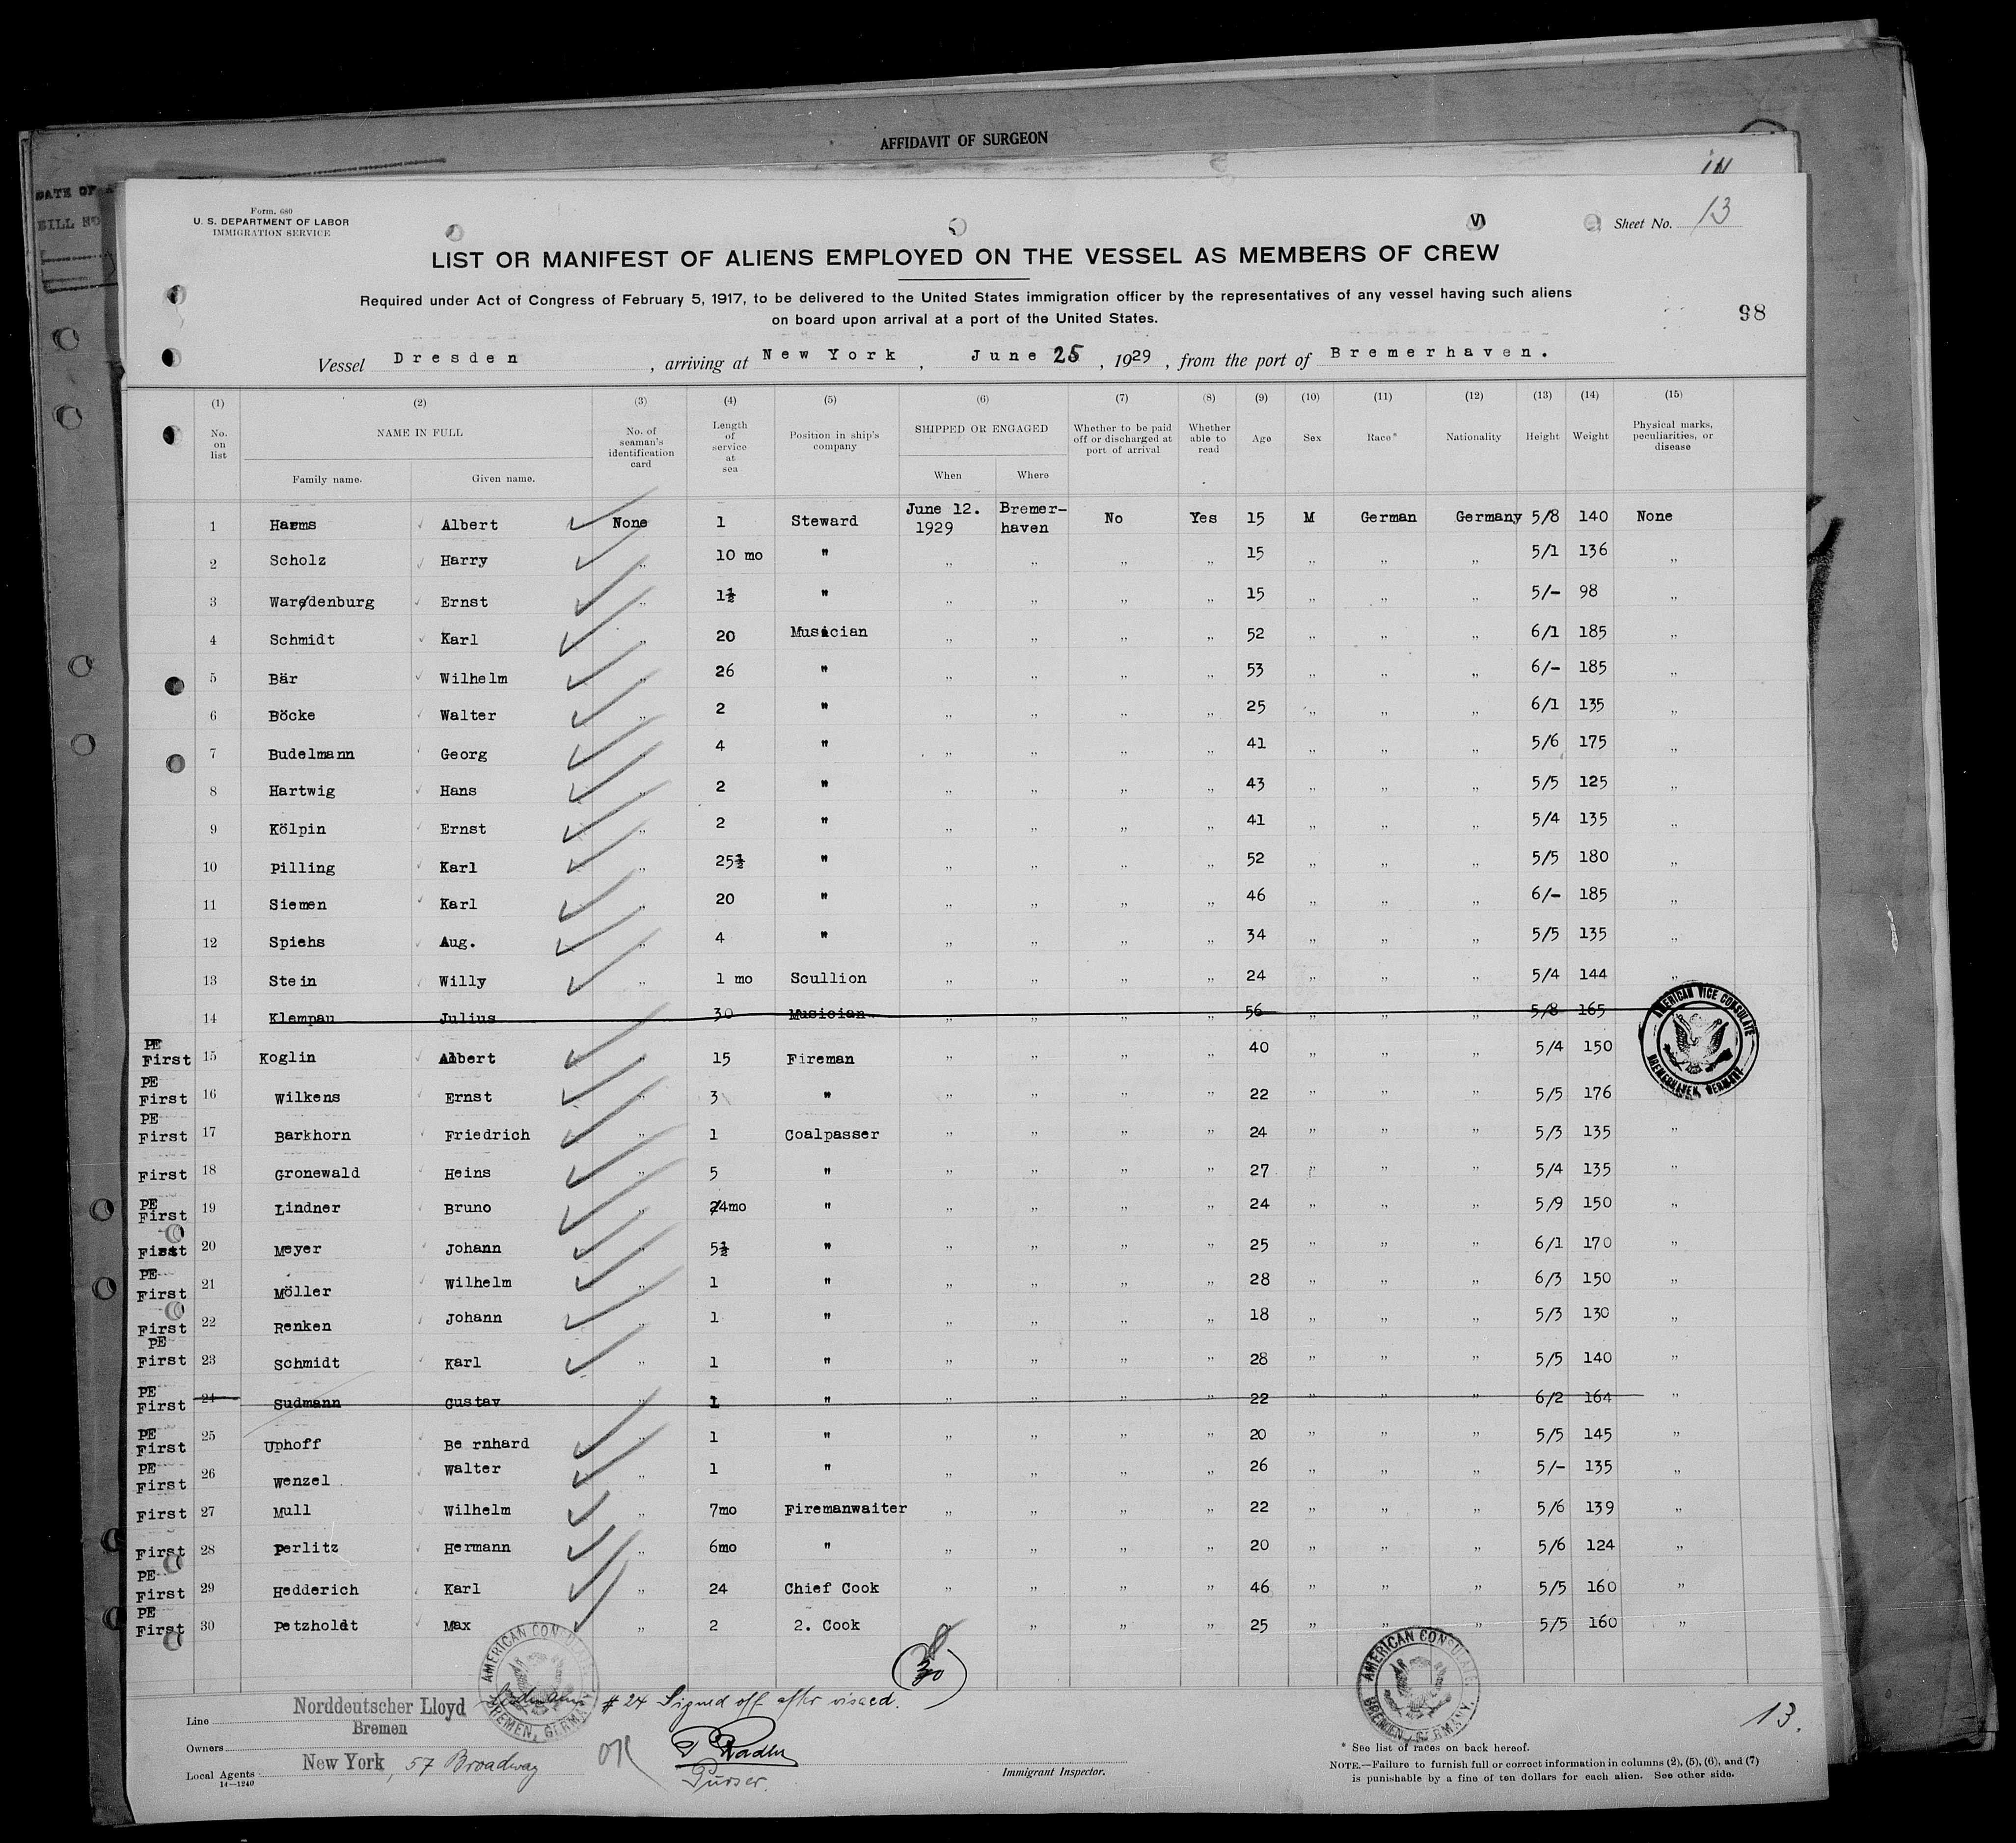 AFFIDAVIT OF SURGEON
DATE OF
BILL NO
Form. 680
U. S. DEPARTMENT OF LABOR
IMMIGRATION SERVICE
Sheet No. 13
LIST OR MANIFEST OF ALIENS EMPLOYED ON THE VESSEL AS MEMBERS OF CREW
Required under Act of Congress of February 5, 1917, to be delivered to the United States immigration officer by the representatives of any vessel having such aliens
on board upon arrival at a port of the United States.
98
Vessel Dresden, arriving at New York, June 25, 1929, from the port of Bremerhaven.
(1) (2) (3) (4) (5) (6) (7) (8) (9) (10) (11) (12) (13) (14) (15)
No. on list NAME IN FULL Family name. Given name. No. of seaman's identification card Length of service at sea Position in ship's company SHIPPED OR ENGAGED When Where Whether to be paid off or discharged at port of arrival Whether able to read Age Sex Race* Nationality Height Weight Physical marks, peculiarities, or disease
1 Harms Albert None 1 Steward June 12. 1929 Bremer-haven No Yes 15 M German Germany 5/8 140 None
2 Scholz Harry " 10 mo " " " " " 15 " " " 5/1 136 "
3 Wardenburg Ernst " 1½ " " " " " 15 " " " 5/- 98 "
4 Schmidt Karl " 20 Musician " " " " 52 " " " 6/1 185 "
5 Bär Wilhelm " 26 " " " " " 53 " " " 6/- 185 "
6 Böcke Walter " 2 " " " " " 25 " " " 6/1 135 "
7 Budelmann Georg " 4 " " " " " 41 " " " 5/6 175 "
8 Hartwig Hans " 2 " " " " " 43 " " " 5/5 125 "
9 Kölpin Ernst " 2 " " " " " 41 " " " 5/4 135 "
10 Pilling Karl " 25½ " " " " " 52 " " " 5/5 180 "
11 Siemen Karl " 20 " " " " " 46 " " " 6/- 185 "
12 Spiehs Aug. " 4 " " " " " 34 " " " 5/5 135 "
13 Stein Willy " 1 mo Scullion " " " " 24 " " " 5/4 144 "
14 Klempau Julius 30 Musician " " " " 56 " " " 5/8 165
PE First 15 Koglin Albert " 15 Fireman " " " " 40 " " " 5/4 150
PE First 16 Wilkens Ernst " 3 " " " " " 22 " " " 5/5 176
PE First 17 Barkhorn Friedrich " 1 Coalpasser " " " " 24 " " " 5/3 135 "
First 18 Gronewald Heins " 5 " " " " " 27 " " " 5/4 135 "
PE First 19 Lindner Bruno " 4mo " " " " " 24 " " " 5/9 150 "
First 20 Meyer Johann " 5½ " " " " " 25 " " " 6/1 170 "
PE First 21 Möller Wilhelm " 1 " " " " " 28 " " " 6/3 150 "
First 22 Renken Johann " 1 " " " " " 18 " " " 5/3 130 "
PE First 23 Schmidt Karl " 1 " " " " " 28 " " " 5/5 140 "
PE First 24 Sudmann Gustav " 1 " " " " " 22 " " " 6/2 164 "
PE First 25 Uphoff Bernhard " 1 " " " " " 20 " " " 5/5 145 "
PE First 26 Wenzel Walter " 1 " " " " " 26 " " " 5/- 135 "
First 27 Mull Wilhelm " 7mo Firemanwaiter " " " " 22 " " " 5/6 139 "
First 28 Perlitz Hermann " 6mo " " " " " 20 " " " 5/6 124 "
PE First 29 Hedderich Karl " 24 Chief Cook " " " " 46 " " " 5/5 160 "
PE First 30 Petzholdt Max " 2 2. Cook " " " " 25 " " " 5/5 160 "
AMERICAN VICE CONSULATE BREMERHAVEN, GERMANY
AMERICAN CONSULATE BREMEN, GERMANY.
AMERICAN CONSULATE BREMEN, GERMANY.
30
Line Norddeutscher Lloyd
Bremen
Sudmann #24 Signed off after visaed.
13.
Owners
OK
Purser.
Local Agents New York, 57 Broadway
14—1240
Immigrant Inspector.
* See list of races on back hereof.
NOTE.—Failure to furnish full or correct information in columns (2), (5), (6), and (7)
is punishable by a fine of ten dollars for each alien. See other side.